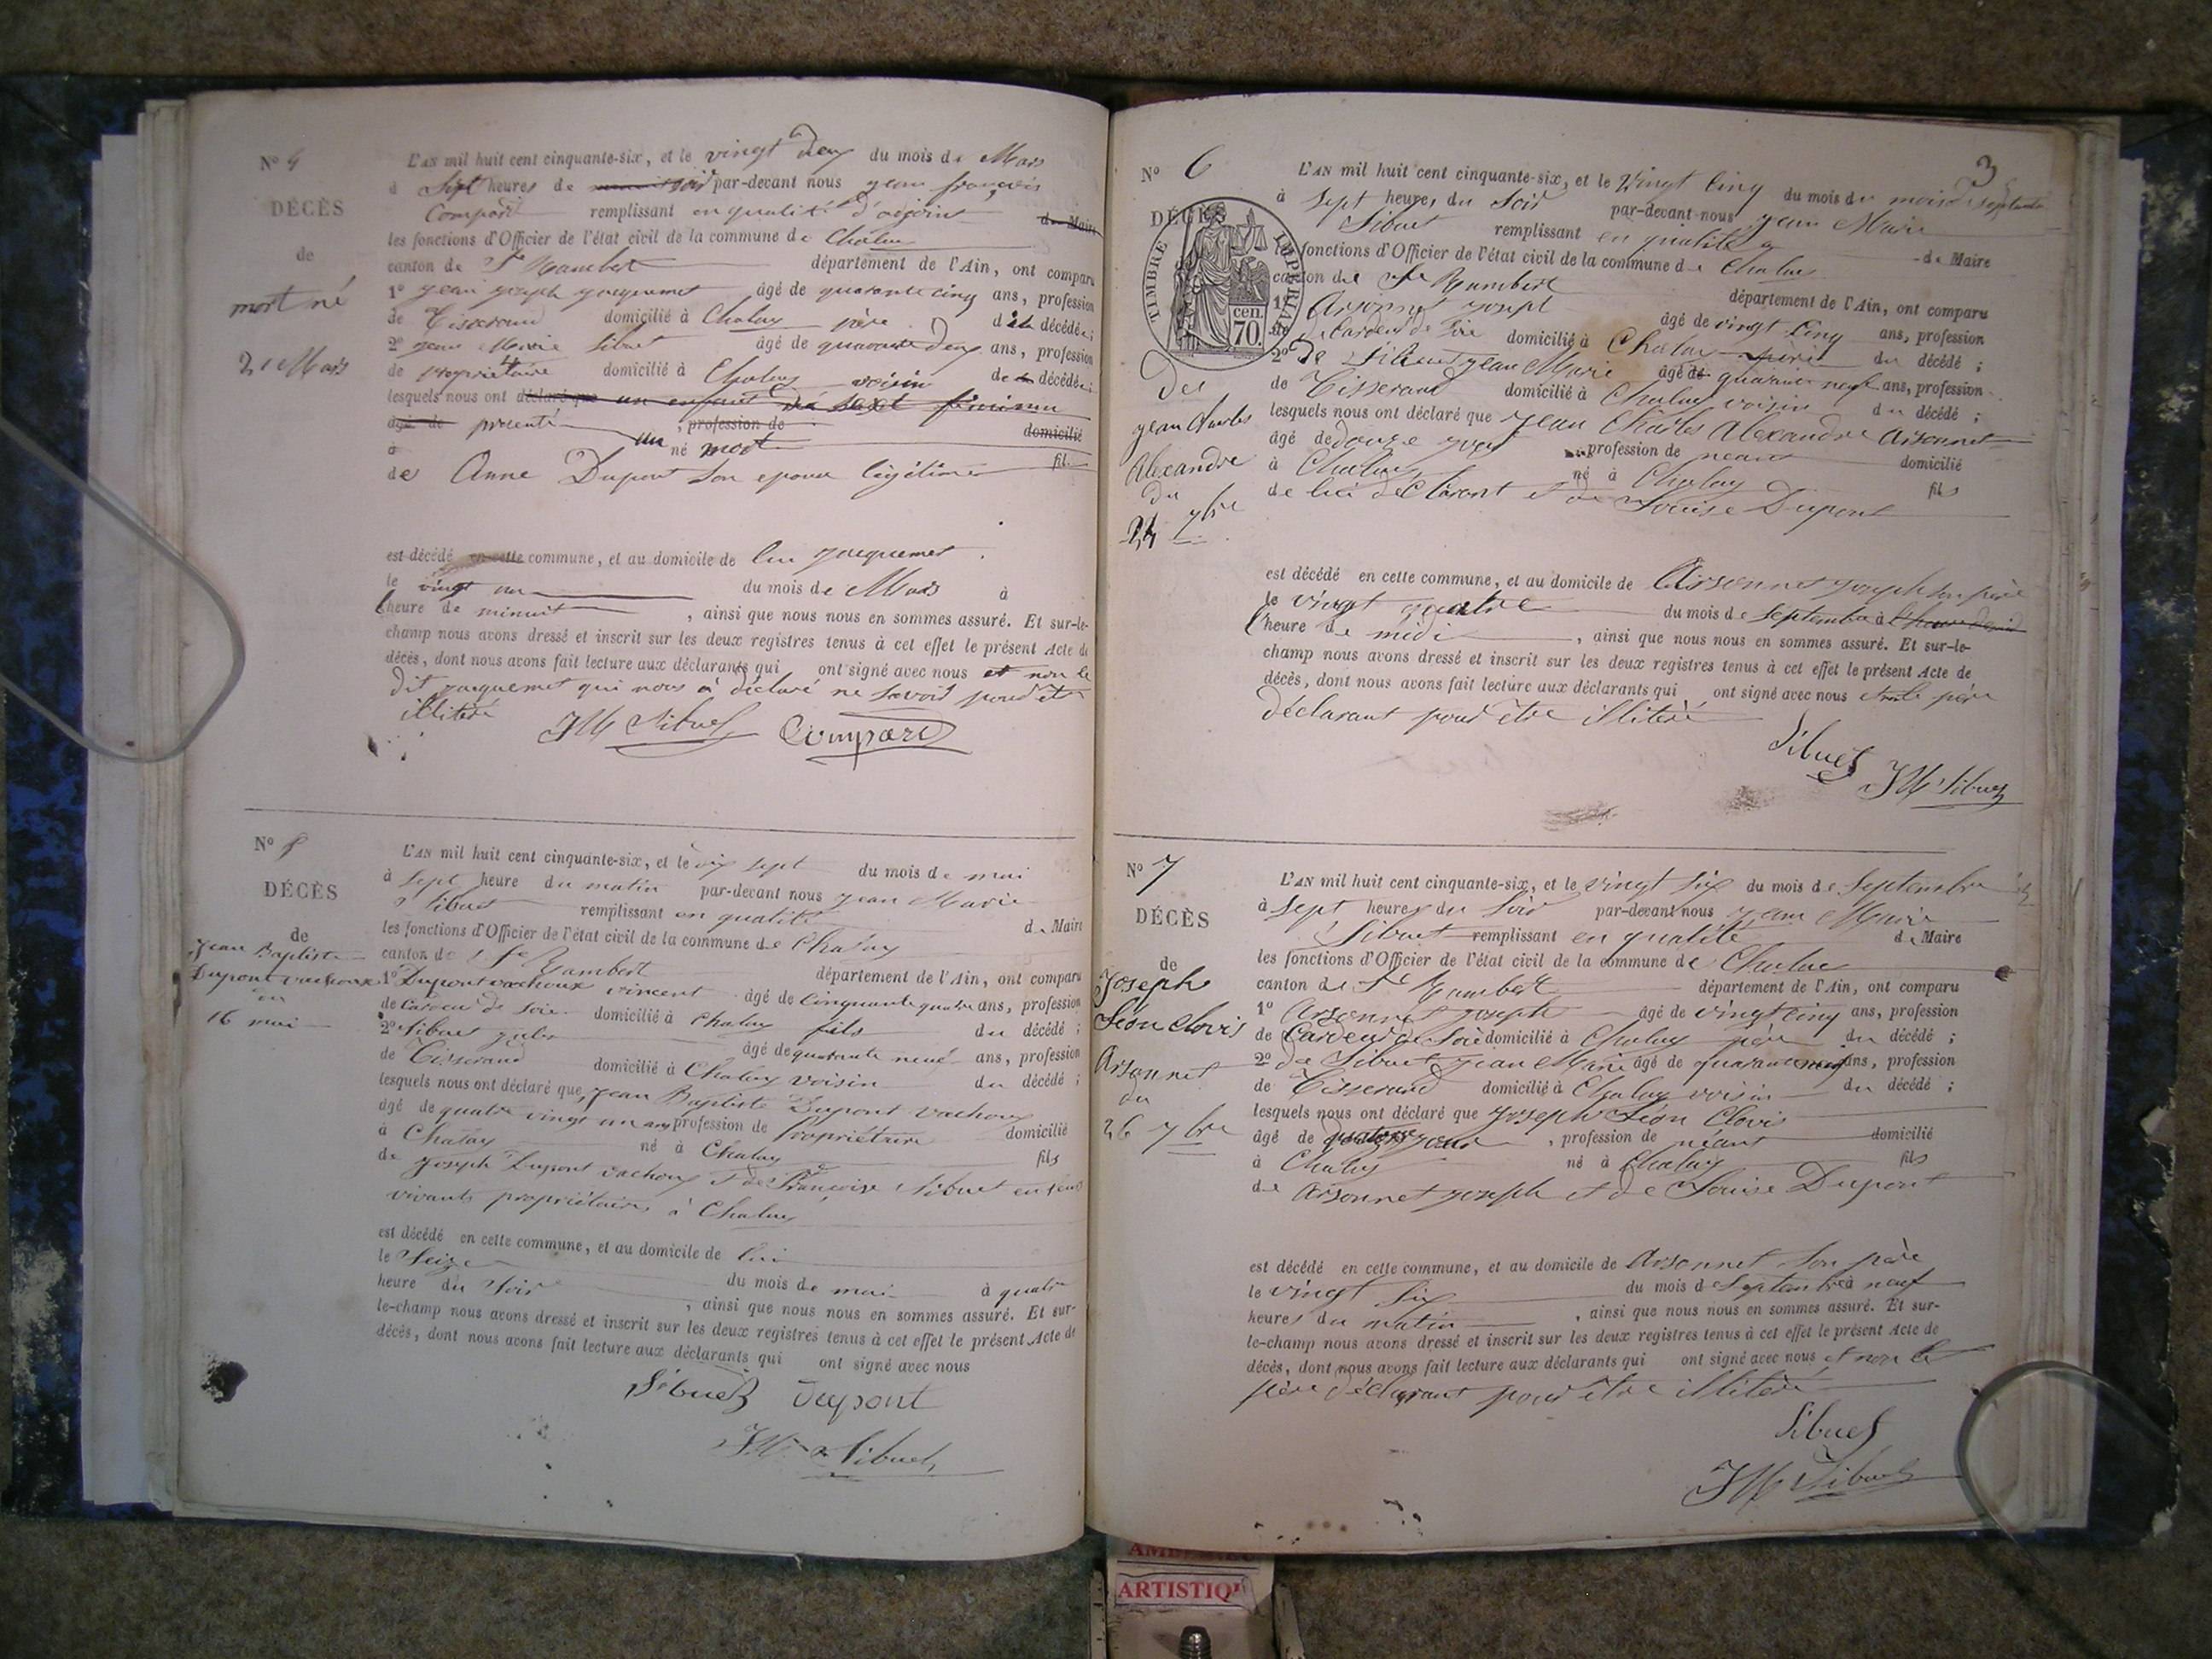 N° 4
DÉCÈS
de
mort né
21 Mars
L'AN mil huit cent cinquante-six, et le vingt deux du mois de Mars
à Sept heures de soir par-devant nous jean françois
Compard remplissant en qualité d'adjoint de Maire
les fonctions d'Officier de l'état civil de la commune de Chaley
canton de St Rambert département de l'Ain, ont comparu
1° jean joseph jacquemet âgé de quarante cinq ans, profession
de Tisserand domicilié à Chaley père d la décédée;
2° jean Marie Sibuet âgé de quarante deux ans, profession
de propriétaire domicilié à Chaley voisin de la décédée;
lesquels nous ont déclaré que un enfant du sexe féminin
âgé de presenté , profession de domicilié
à un né mort fil
de Anne Dupont son epouse légitime
est décédé en cette commune, et au domicile de lui jacquemet
le vingt un du mois de Mars à
l'heure de minuit , ainsi que nous nous en sommes assuré. Et sur-le-
champ nous avons dressé et inscrit sur les deux registres tenus à cet effet le présent Acte de
décès, dont nous avons fait lecture aux déclarants qui ont signé avec nous et non le
dit jacquemet qui nous a déclaré ne savoir pour être
illitéré
JM Sibuet Compard
N° 5
DÉCÈS
de
Jean Baptiste
Dupont vachoux
du
16 mai
L'AN mil huit cent cinquante-six, et le dix sept du mois de mai
à Sept heure du matin par-devant nous jean Marie
Sibuet remplissant en qualité de Maire
les fonctions d'Officier de l'état civil de la commune de Chaley
canton de St Rambert département de l'Ain, ont comparu
1° Dupont vachoux vincent âgé de cinquante quatre ans, profession
de cardeur de soie domicilié à Chaley fils du décédé ;
2° Sibuet jules âgé de quarante neuf ans, profession
de Tisserand domicilié à Chaley voisin du décédé ;
lesquels nous ont déclaré que jean Baptiste Dupont vachoux
âgé de quatre vingt un ans profession de Propriétaire domicilié
à Chaley né à Chaley fils
de joseph Dupont vachoux et de Françoise Sibuet en leur
vivants propriétaires à Chaley
est décédé en cette commune, et au domicile de lui
le Seize du mois de mai à quatre
heure du Soir , ainsi que nous nous en sommes assuré. Et sur-
le-champ nous avons dressé et inscrit sur les deux registres tenus à cet effet le présent Acte de
décès, dont nous avons fait lecture aux déclarants qui ont signé avec nous
Sibuet Dupont
JM Sibuet
3
N° 6
DÉCÈS
TIMBRE IMPÉRIAL
70 cen.
de
jean charles
Alexandre
du
24 7bre
L'AN mil huit cent cinquante-six, et le Vingt Cinq du mois du mois de Septembre
à Sept heures du Soir par-devant nous jean Marie
Sibuet remplissant en qualité de Maire
les fonctions d'Officier de l'état civil de la commune de Chaley
canton de St Rambert département de l'Ain, ont comparu
1° Arsonnet joseph âgé de vingt Cinq ans, profession
de Cardeur de Soie domicilié à Chaley père du décédé ;
2° de Sibuet jean Marie âgé de quarante neuf ans, profession
de Tisserand domicilié à Chaley voisin du décédé ;
lesquels nous ont déclaré que jean Charles Alexandre Arsonnet
âgé de douze jour , profession de néant domicilié
à Chaley né à Chaley fils
de lui déclarant et de Louise Dupont
est décédé en cette commune, et au domicile de Arsonnet joseph son père
le vingt quatre du mois de Septembre à
l'heure de midi , ainsi que nous nous en sommes assuré. Et sur-le-
champ nous avons dressé et inscrit sur les deux registres tenus à cet effet le présent Acte de
décès, dont nous avons fait lecture aux déclarants qui ont signé avec nous et non le père
déclarant pour être illitéré
Sibuet
JM Sibuet
N° 7
DÉCÈS
de
Joseph
Léon Clovis
Arsonnet
du
26 7bre
L'AN mil huit cent cinquante-six, et le vingt Six du mois de Septembre
à Sept heures du Soir par-devant nous jean Marie
Sibuet remplissant en qualité de Maire
les fonctions d'Officier de l'état civil de la commune de Chaley
canton de St Rambert département de l'Ain, ont comparu
1° Arsonnet joseph âgé de vingt cinq ans, profession
de Cardeur de Soie domicilié à Chaley père du décédé ;
2° de Sibuet jean Marie âgé de quarante neuf ans, profession
de Tisserand domicilié à Chaley voisin du décédé ;
lesquels nous ont déclaré que joseph Léon Clovis
âgé de quatorze jour , profession de néant domicilié
à Chaley né à Chaley fils
de Arsonnet joseph et de Louise Dupont
est décédé en cette commune, et au domicile de Arsonnet son père
le vingt Six du mois de Septembre à neuf
heures du matin , ainsi que nous nous en sommes assuré. Et sur-
le-champ nous avons dressé et inscrit sur les deux registres tenus à cet effet le présent Acte de
décès, dont nous avons fait lecture aux déclarants qui ont signé avec nous et non le
père déclarant pour être illitéré
Sibuet
JM Sibuet
ARTISTIQ